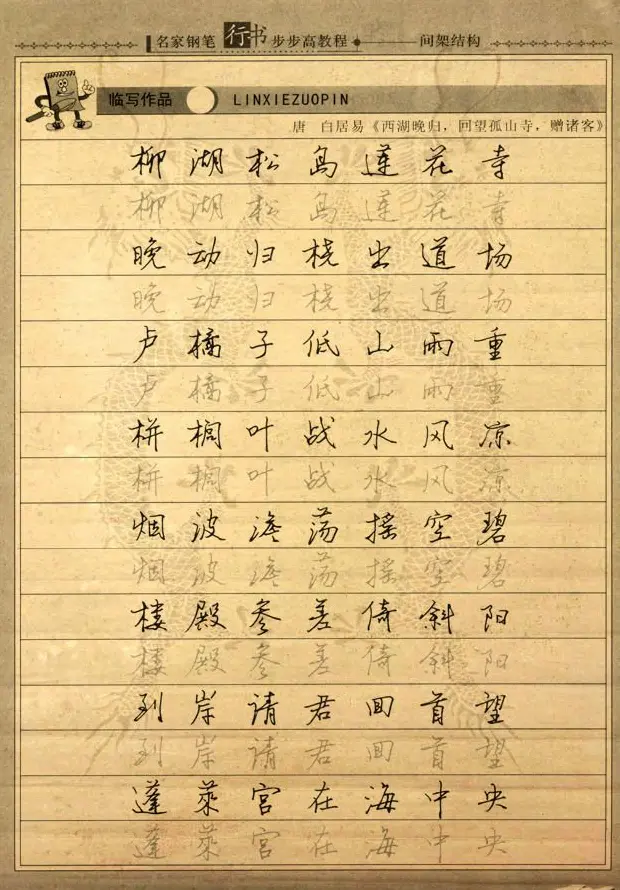 名家钢笔行书步步高教程 间架结构
临写作品 LINXIEZUOPIN
唐 白居易《西湖晚归，回望孤山寺，赠诸客》
柳湖松岛莲花寺
柳湖松岛莲花寺
晚动归桡出道场
晚动归桡出道场
卢橘子低山雨重
卢橘子低山雨重
栟榈叶战水风凉
栟榈叶战水风凉
烟波澹荡摇空碧
烟波澹荡摇空碧
楼殿参差倚斜阳
楼殿参差倚斜阳
到岸请君回首望
到岸请君回首望
蓬莱宫在海中央
蓬莱宫在海中央